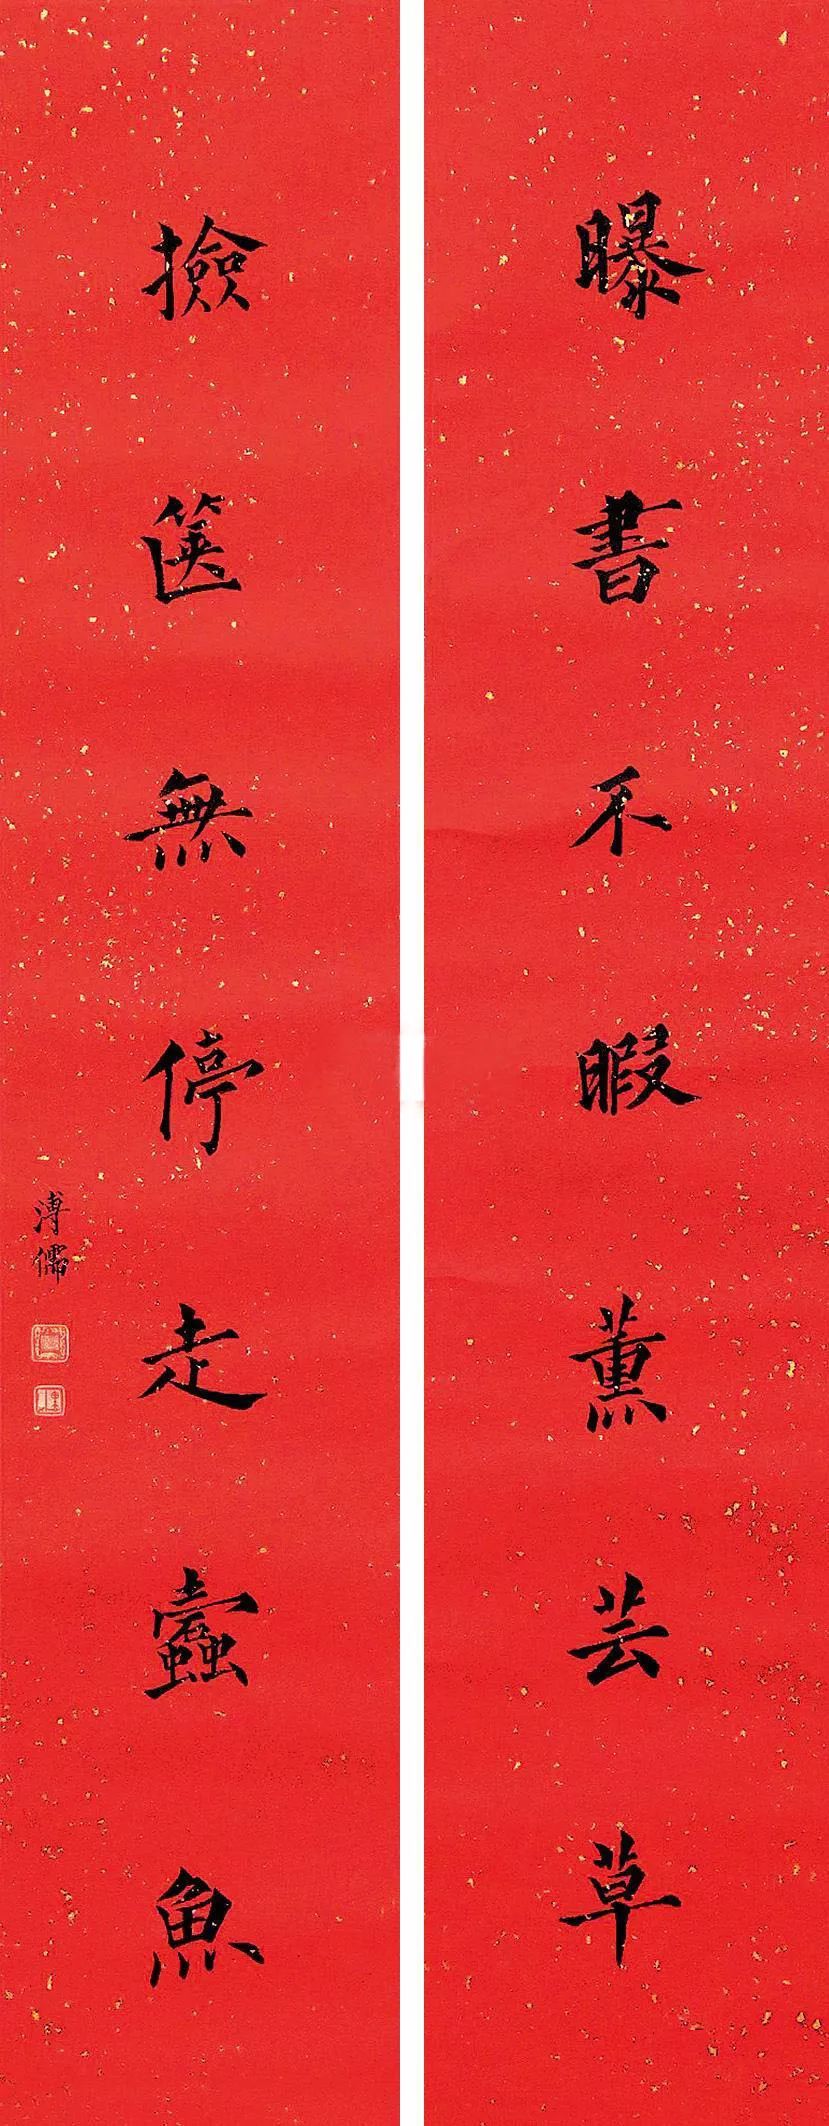 曝書不暇薰芸草
撿篋無停走蠹魚
溥儒